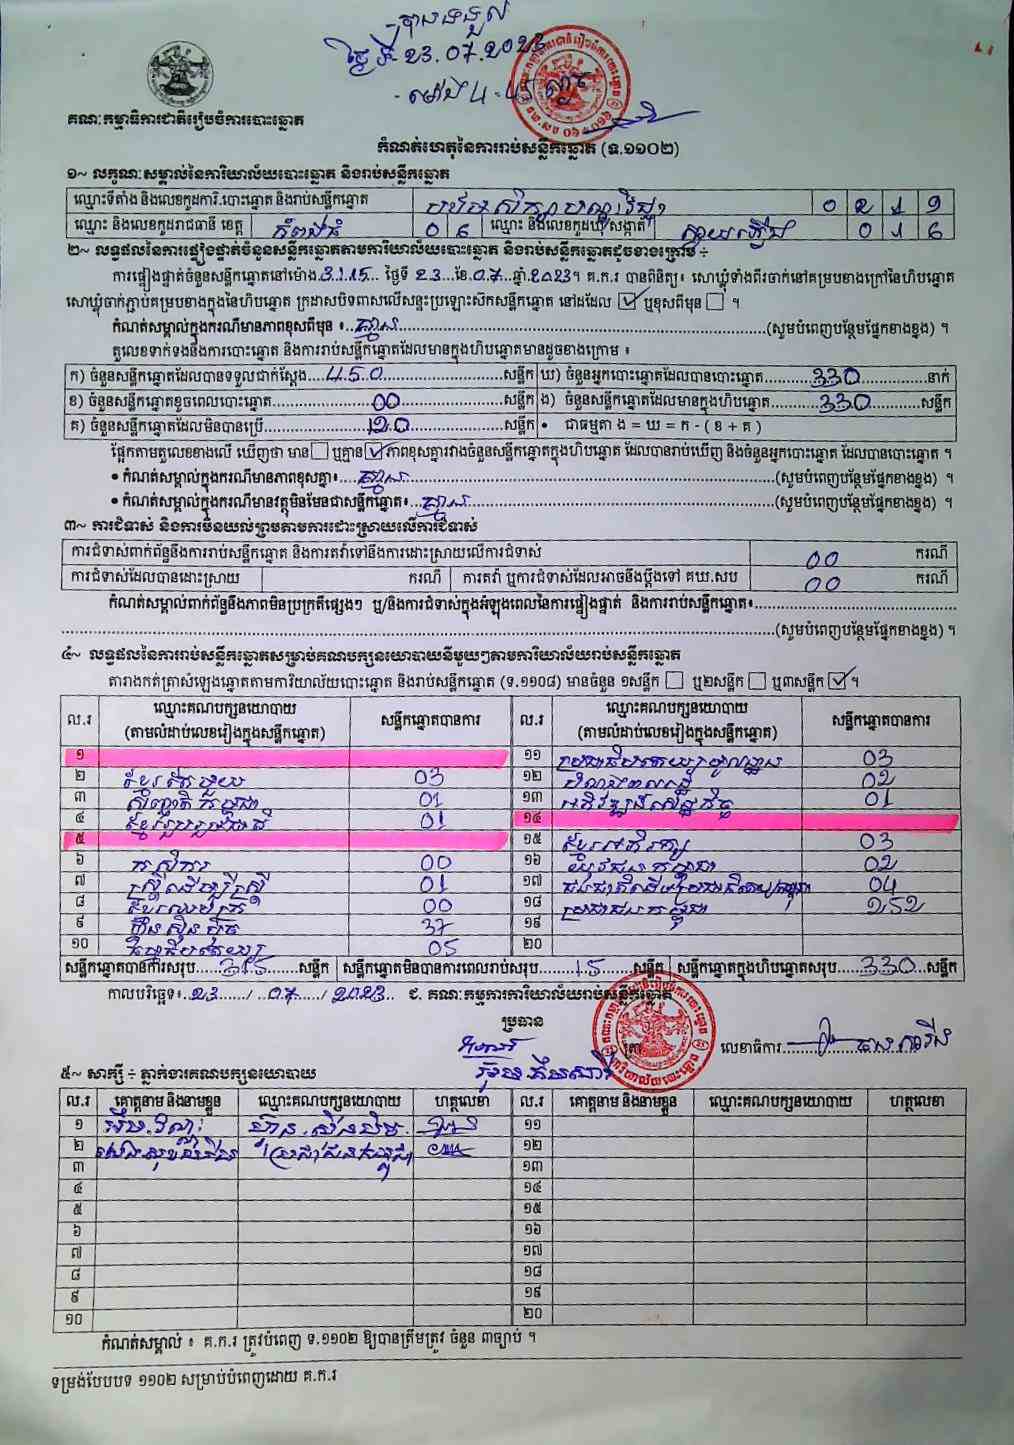 បានទទួល
ថ្ងៃទី 23.07.2023
ម៉ោង 4:45 នាទី
គណៈកម្មាធិការជាតិរៀបចំការបោះឆ្នោត
កំណត់ហេតុនៃការរាប់សន្លឹកឆ្នោត (ទ.១១០២)
១~ លក្ខណៈសម្គាល់នៃការិយាល័យបោះឆ្នោត និងរាប់សន្លឹកឆ្នោត
ឈ្មោះទីតាំង និងលេខកូដការិ.បោះឆ្នោត និងរាប់សន្លឹកឆ្នោត 0 2 1 9
ឈ្មោះ និងលេខកូដរាជធានី ខេត្ត កំពង់ធំ 0 6 ឈ្មោះ និងលេខកូដឃុំ សង្កាត់ 0 1 6
២~ លទ្ធផលនៃការផ្ទៀងផ្ទាត់ចំនួនសន្លឹកឆ្នោតតាមការិយាល័យបោះឆ្នោត និងរាប់សន្លឹកឆ្នោតដូចខាងក្រោម ÷
ការផ្ទៀងផ្ទាត់ចំនួនសន្លឹកឆ្នោតនៅម៉ោង 3:15 ថ្ងៃទី 23 ខែ 07 ឆ្នាំ 2023។ គ.ក.រ បានពិនិត្យ៖ សោឃ្លុំទាំងពីរចាក់នៅគម្របខាងក្រៅនៃហិបឆ្នោត
សោឃ្លុំចាក់ភ្ជាប់គម្របខាងក្នុងនៃហិបឆ្នោត ក្រដាសបិទពាសលើសន្ទះប្រឡោះសិកសន្លឹកឆ្នោត នៅដដែល ☑ ឬខុសពីមុន ☐ ។
កំណត់សម្គាល់ក្នុងករណីមានភាពខុសពីមុន ៖ គ្មាន (សូមបំពេញបន្ថែមផ្នែកខាងខ្នង) ។
តួលេខទាក់ទងនឹងការបោះឆ្នោត និងការរាប់សន្លឹកឆ្នោតដែលមានក្នុងហិបឆ្នោតមានដូចខាងក្រោម ៖
ក) ចំនួនសន្លឹកឆ្នោតដែលបានទទួលជាក់ស្តែង 450 សន្លឹក ឃ) ចំនួនអ្នកបោះឆ្នោតដែលបានបោះឆ្នោត 330 នាក់
ខ) ចំនួនសន្លឹកឆ្នោតខូចពេលបោះឆ្នោត 00 សន្លឹក ង) ចំនួនសន្លឹកឆ្នោតដែលមានក្នុងហិបឆ្នោត 330 សន្លឹក
គ) ចំនួនសន្លឹកឆ្នោតដែលមិនបានប្រើ 120 សន្លឹក • ជាធម្មតា ង = ឃ = ក - ( ខ + គ )
ផ្អែកតាមតួលេខខាងលើ ឃើញថា មាន ☐ ឬគ្មាន ☑ ភាពខុសគ្នារវាងចំនួនសន្លឹកឆ្នោតក្នុងហិបឆ្នោត ដែលបានរាប់ឃើញ និងចំនួនអ្នកបោះឆ្នោត ដែលបានបោះឆ្នោត ។
• កំណត់សម្គាល់ក្នុងករណីមានភាពខុសគ្នា៖ គ្មាន (សូមបំពេញបន្ថែមផ្នែកខាងខ្នង) ។
• កំណត់សម្គាល់ក្នុងករណីមានវត្ថុមិនមែនជាសន្លឹកឆ្នោត៖ គ្មាន (សូមបំពេញបន្ថែមផ្នែកខាងខ្នង) ។
៣~ ការជំទាស់ និងការមិនយល់ព្រមតាមការដោះស្រាយលើការជំទាស់
ការជំទាស់ពាក់ព័ន្ធនឹងការរាប់សន្លឹកឆ្នោត និងការតវ៉ាទៅនឹងការដោះស្រាយលើការជំទាស់ 00 ករណី
ការជំទាស់ដែលបានដោះស្រាយ ករណី ការតវ៉ា ឬការជំទាស់ដែលអាចនឹងប្តឹងទៅ គឃ.សប 00 ករណី
កំណត់សម្គាល់ពាក់ព័ន្ធនឹងភាពមិនប្រក្រតីផ្សេងៗ ឬ/និងការជំទាស់ក្នុងអំឡុងពេលនៃការផ្ទៀងផ្ទាត់ និងការរាប់សន្លឹកឆ្នោត៖
(សូមបំពេញបន្ថែមផ្នែកខាងខ្នង) ។
៤~ លទ្ធផលនៃការរាប់សន្លឹកឆ្នោតសម្រាប់គណបក្សនយោបាយនីមួយៗតាមការិយាល័យរាប់សន្លឹកឆ្នោត
តារាងកត់ត្រាសំឡេងឆ្នោតតាមការិយាល័យបោះឆ្នោត និងរាប់សន្លឹកឆ្នោត (ទ.១១០៨) មានចំនួន ១សន្លឹក ☐ ឬ២សន្លឹក ☐ ឬ៣សន្លឹក ☑ ។
ល.រ ឈ្មោះគណបក្សនយោបាយ (តាមលំដាប់លេខរៀងក្នុងសន្លឹកឆ្នោត) សន្លឹកឆ្នោតបានការ ល.រ ឈ្មោះគណបក្សនយោបាយ (តាមលំដាប់លេខរៀងក្នុងសន្លឹកឆ្នោត) សន្លឹកឆ្នោតបានការ
១ ១១ 03
២ ខ្មែរតែមួយ 03 ១២ 02
៣ សញ្ជាតិកម្ពុជា 01 ១៣ 01
៤ ខ្មែររួបរួមជាតិ 01 ១៤
៥ ១៥ ខ្មែរអភិរក្ស 03
៦ កសិករ 00 ១៦ យុវជនកម្ពុជា 02
៧ ស្ត្រីដើម្បីស្ត្រី 01 ១៧ 04
៨ 00 ១៨ ប្រជាជនកម្ពុជា 252
៩ ហ៊្វុនស៊ិនប៉ិច 37 ១៩
១០ 05 ២០
សន្លឹកឆ្នោតបានការសរុប 315 សន្លឹក សន្លឹកឆ្នោតមិនបានការពេលរាប់សរុប 15 សន្លឹក សន្លឹកឆ្នោតក្នុងហិបឆ្នោតសរុប 330 សន្លឹក
កាលបរិច្ឆេទ៖ 23 / 07 / 2023 ជ. គណៈកម្មការការិយាល័យរាប់សន្លឹកឆ្នោត
ប្រធាន
ត្រា លេខាធិការ
៥~ សាក្សី ÷ ភ្នាក់ងារគណបក្សនយោបាយ
ល.រ គោត្តនាម និងនាមខ្លួន ឈ្មោះគណបក្សនយោបាយ ហត្ថលេខា ល.រ គោត្តនាម និងនាមខ្លួន ឈ្មោះគណបក្សនយោបាយ ហត្ថលេខា
១ ហ៊្វុនស៊ិនប៉ិច ១១
២ ប្រជាជនកម្ពុជា ១២
៣ ១៣
៤ ១៤
៥ ១៥
៦ ១៦
៧ ១៧
៨ ១៨
៩ ១៩
១០ ២០
កំណត់សម្គាល់ ៖ គ.ក.រ ត្រូវបំពេញ ទ.១១០២ ឱ្យបានត្រឹមត្រូវ ចំនួន ៣ច្បាប់ ។
ទម្រង់បែបបទ ១១០២ សម្រាប់បំពេញដោយ គ.ក.រ